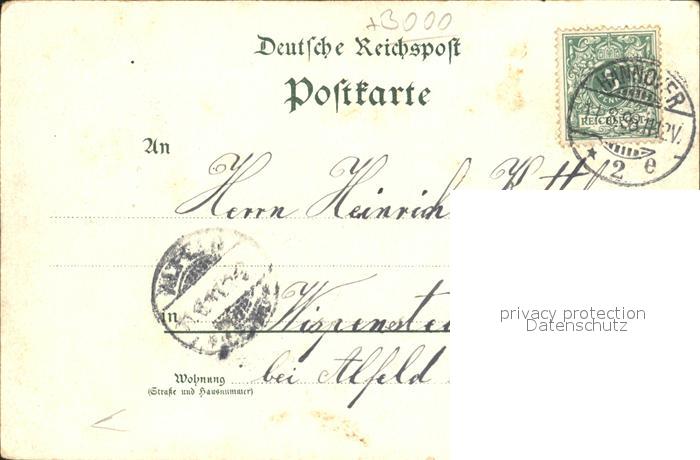 +3000
Deutsche Reichspost
Postkarte
REICHSPOST
HANNOVER
2 e
An
Herrn Heinrich
privacy protection
Datenschutz
in
bei Alfeld
Wohnung
(Straße und Hausnummer)